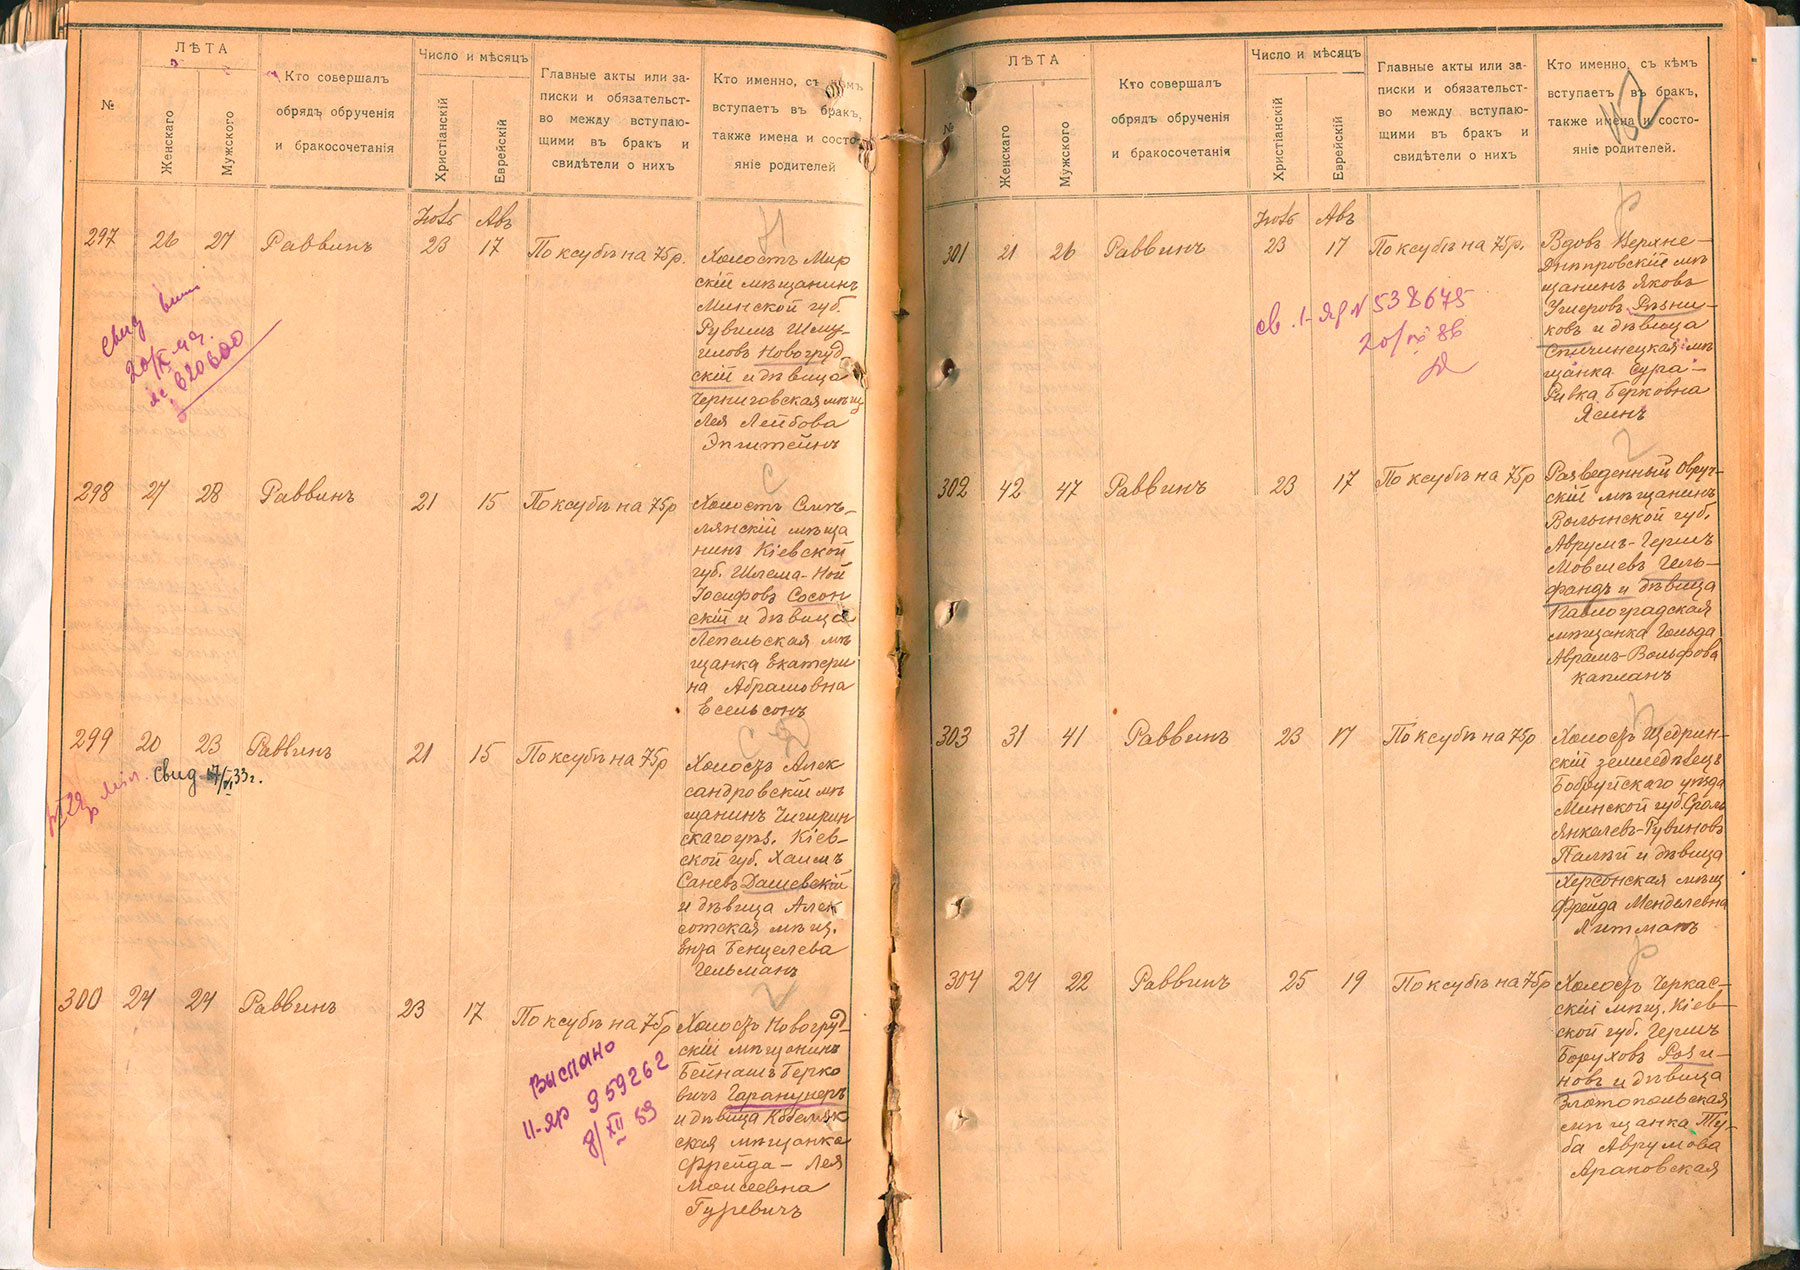 №
ЛѢТА
Женскаго
Мужского
Кто совершалъ
обрядъ обрученія
и бракосочетанія
Число и мѣсяцъ
Христіанскій
Еврейскій
Главные акты или за-
писки и обязательст-
во между вступаю-
щими въ бракъ и
свидѣтели о нихъ
Кто именно, съ кѣмъ
вступаетъ въ бракъ,
также имена и состо-
яніе родителей
297 26 27 Раввинъ
Авъ
23 17 По ксубѣ на 75р.
Холостъ Мир
скій мѣщанинъ
Минской губ.
Рувимъ Шму-
иловъ Новогруд
скій и дѣвица
Черниговская мѣщ
Лея Лейбова
Эпштейнъ
свид
№ 620600
298 27 28 Раввинъ 21 15 По ксубѣ на 75р
Холостъ Смѣ-
лянскій мѣща
нинъ Кіевской
губ. Шлема-Ной
Іосифовъ Сосон
скій и дѣвица
Лепельская мѣ
щанка Екатери
на Абрамовна
Есельсонъ
299 20 23 Раввинъ 21 15 По ксубѣ на 75р
свид 17/VI 33г.
Холостъ Алек
сандровскій мѣ
щанинъ Чигирин
скаго уѣз. Кіев-
ской губ. Хаимъ
Саневъ Дашевскій
и дѣвица Алек
сотская мѣщ.
Енза Бенцелева
Гельманъ
300 24 24 Раввинъ 23 17 По ксубѣ на 75р
Холостъ Новогруд-
скій мѣщанинъ
Бейнашъ Берко
вичъ
и дѣвица Кобеляк
ская мѣщанка
Фрейда-Лея
Моисеевна
Гуревичъ
Выслано
II-яр 959262
8/XII 59
№
ЛѢТА
Женскаго
Мужского
Кто совершалъ
обрядъ обрученія
и бракосочетанія
Число и мѣсяцъ
Христіанскій
Еврейскій
Главные акты или за-
писки и обязательст-
во между вступаю-
щими въ бракъ и
свидѣтели о нихъ
Кто именно, съ кѣмъ
вступаетъ въ бракъ,
также имена и состо-
яніе родителей.
301 21 26 Раввинъ
Авъ
23 17 По ксубѣ на 75р.
Вдовъ Верхне-
Днѣпровскій мѣ
щанинъ Яковъ
Ушеровъ Рѣзни-
ковъ и дѣвица
Спичинецкая мѣ
щанка Сура-
Ривка Берковна
Ясинъ
св. I-яр № 538675
302 42 47 Раввинъ 23 17 По ксубѣ на 75р
Разведенный Овруч-
скій мѣщанинъ
Волынской губ.
Аврумъ-Гершъ
Мовшевъ Гель-
фандъ и дѣвица
Павлоградская
мѣщанка Гольда
Аврамъ-Вольфова
Капланъ
303 31 41 Раввинъ 23 17 По ксубѣ на 75р
Холостъ Щедрин-
скій земледѣлецъ
Бобруйскаго уѣзда
Минской губ. Сроль
Янкелевъ-Рувиновъ
Палѣй и дѣвица
Херсонская мѣщ
Фрейда Менделевна
304 24 22 Раввинъ 25 19 По ксубѣ на 75р
Холостъ Черкас-
скій мѣщ. Кіев-
ской губ. Гершъ
Боруховъ Рази-
новъ и дѣвица
Златопольская
мѣщанка Ту-
ба Аврумова
Араповская